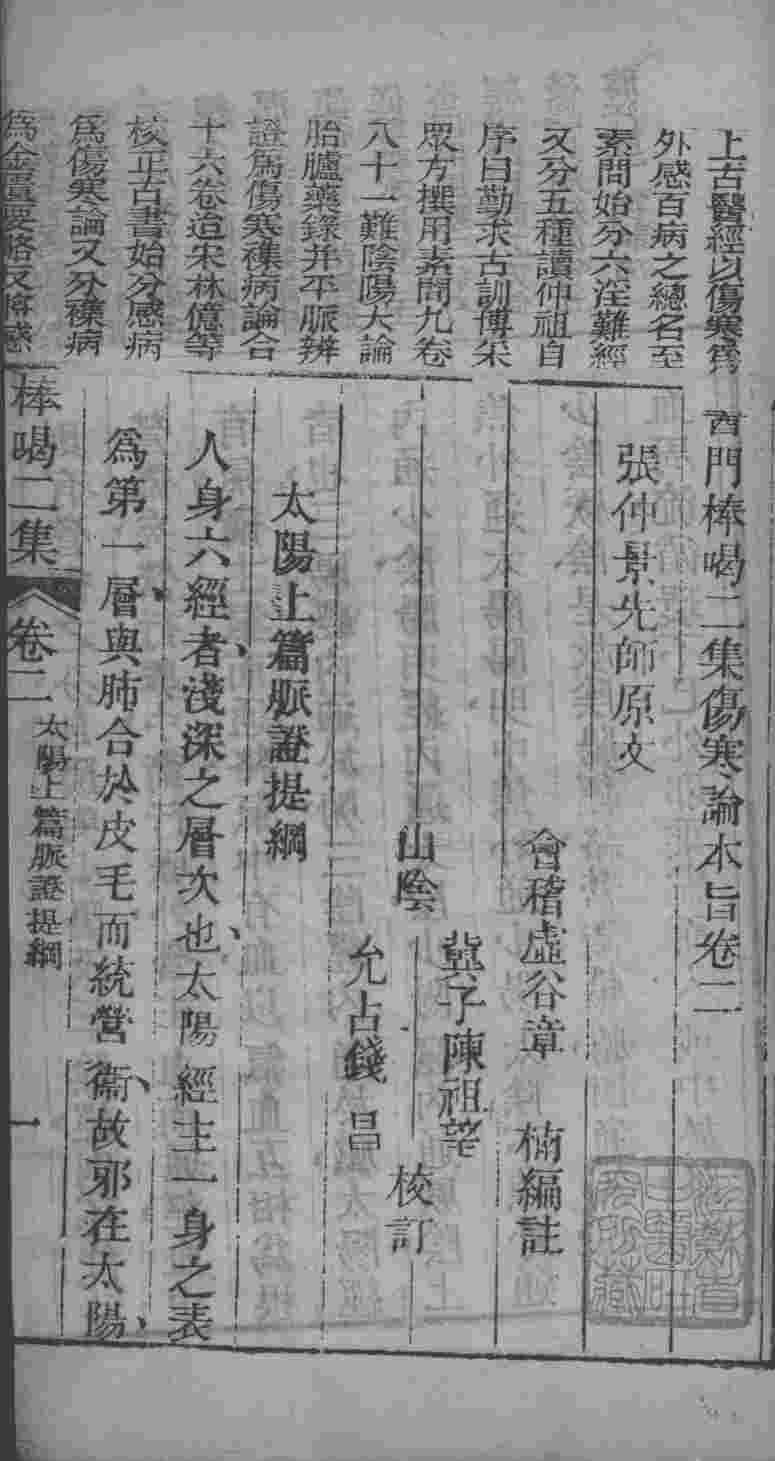 上古醫經以傷寒爲
外感百病之總名至
素問始分六淫難經
又分五種讀仲祖自
序曰勤求古訓博采
眾方撰用素問九卷
八十一難陰陽大論
胎臚藥錄并平脈辨
證爲傷寒襍病論合
十六卷迨宋林億等
核正古書始分感病
爲傷寒論又分襍病
爲金匱要略又將感
酉門棒喝二集傷寒論本旨卷二
張仲景先師原文
會稽虛谷章 楠編註
山陰
冀子陳祖望
允占錢 昌
校訂
太陽上篇脈證提綱
人身六經者淺深之層次也太陽經主一身之表
爲第一層與肺合於皮毛而統營衞故邪在太陽
棒喝二集
卷二
太陽上篇脈證提綱
一